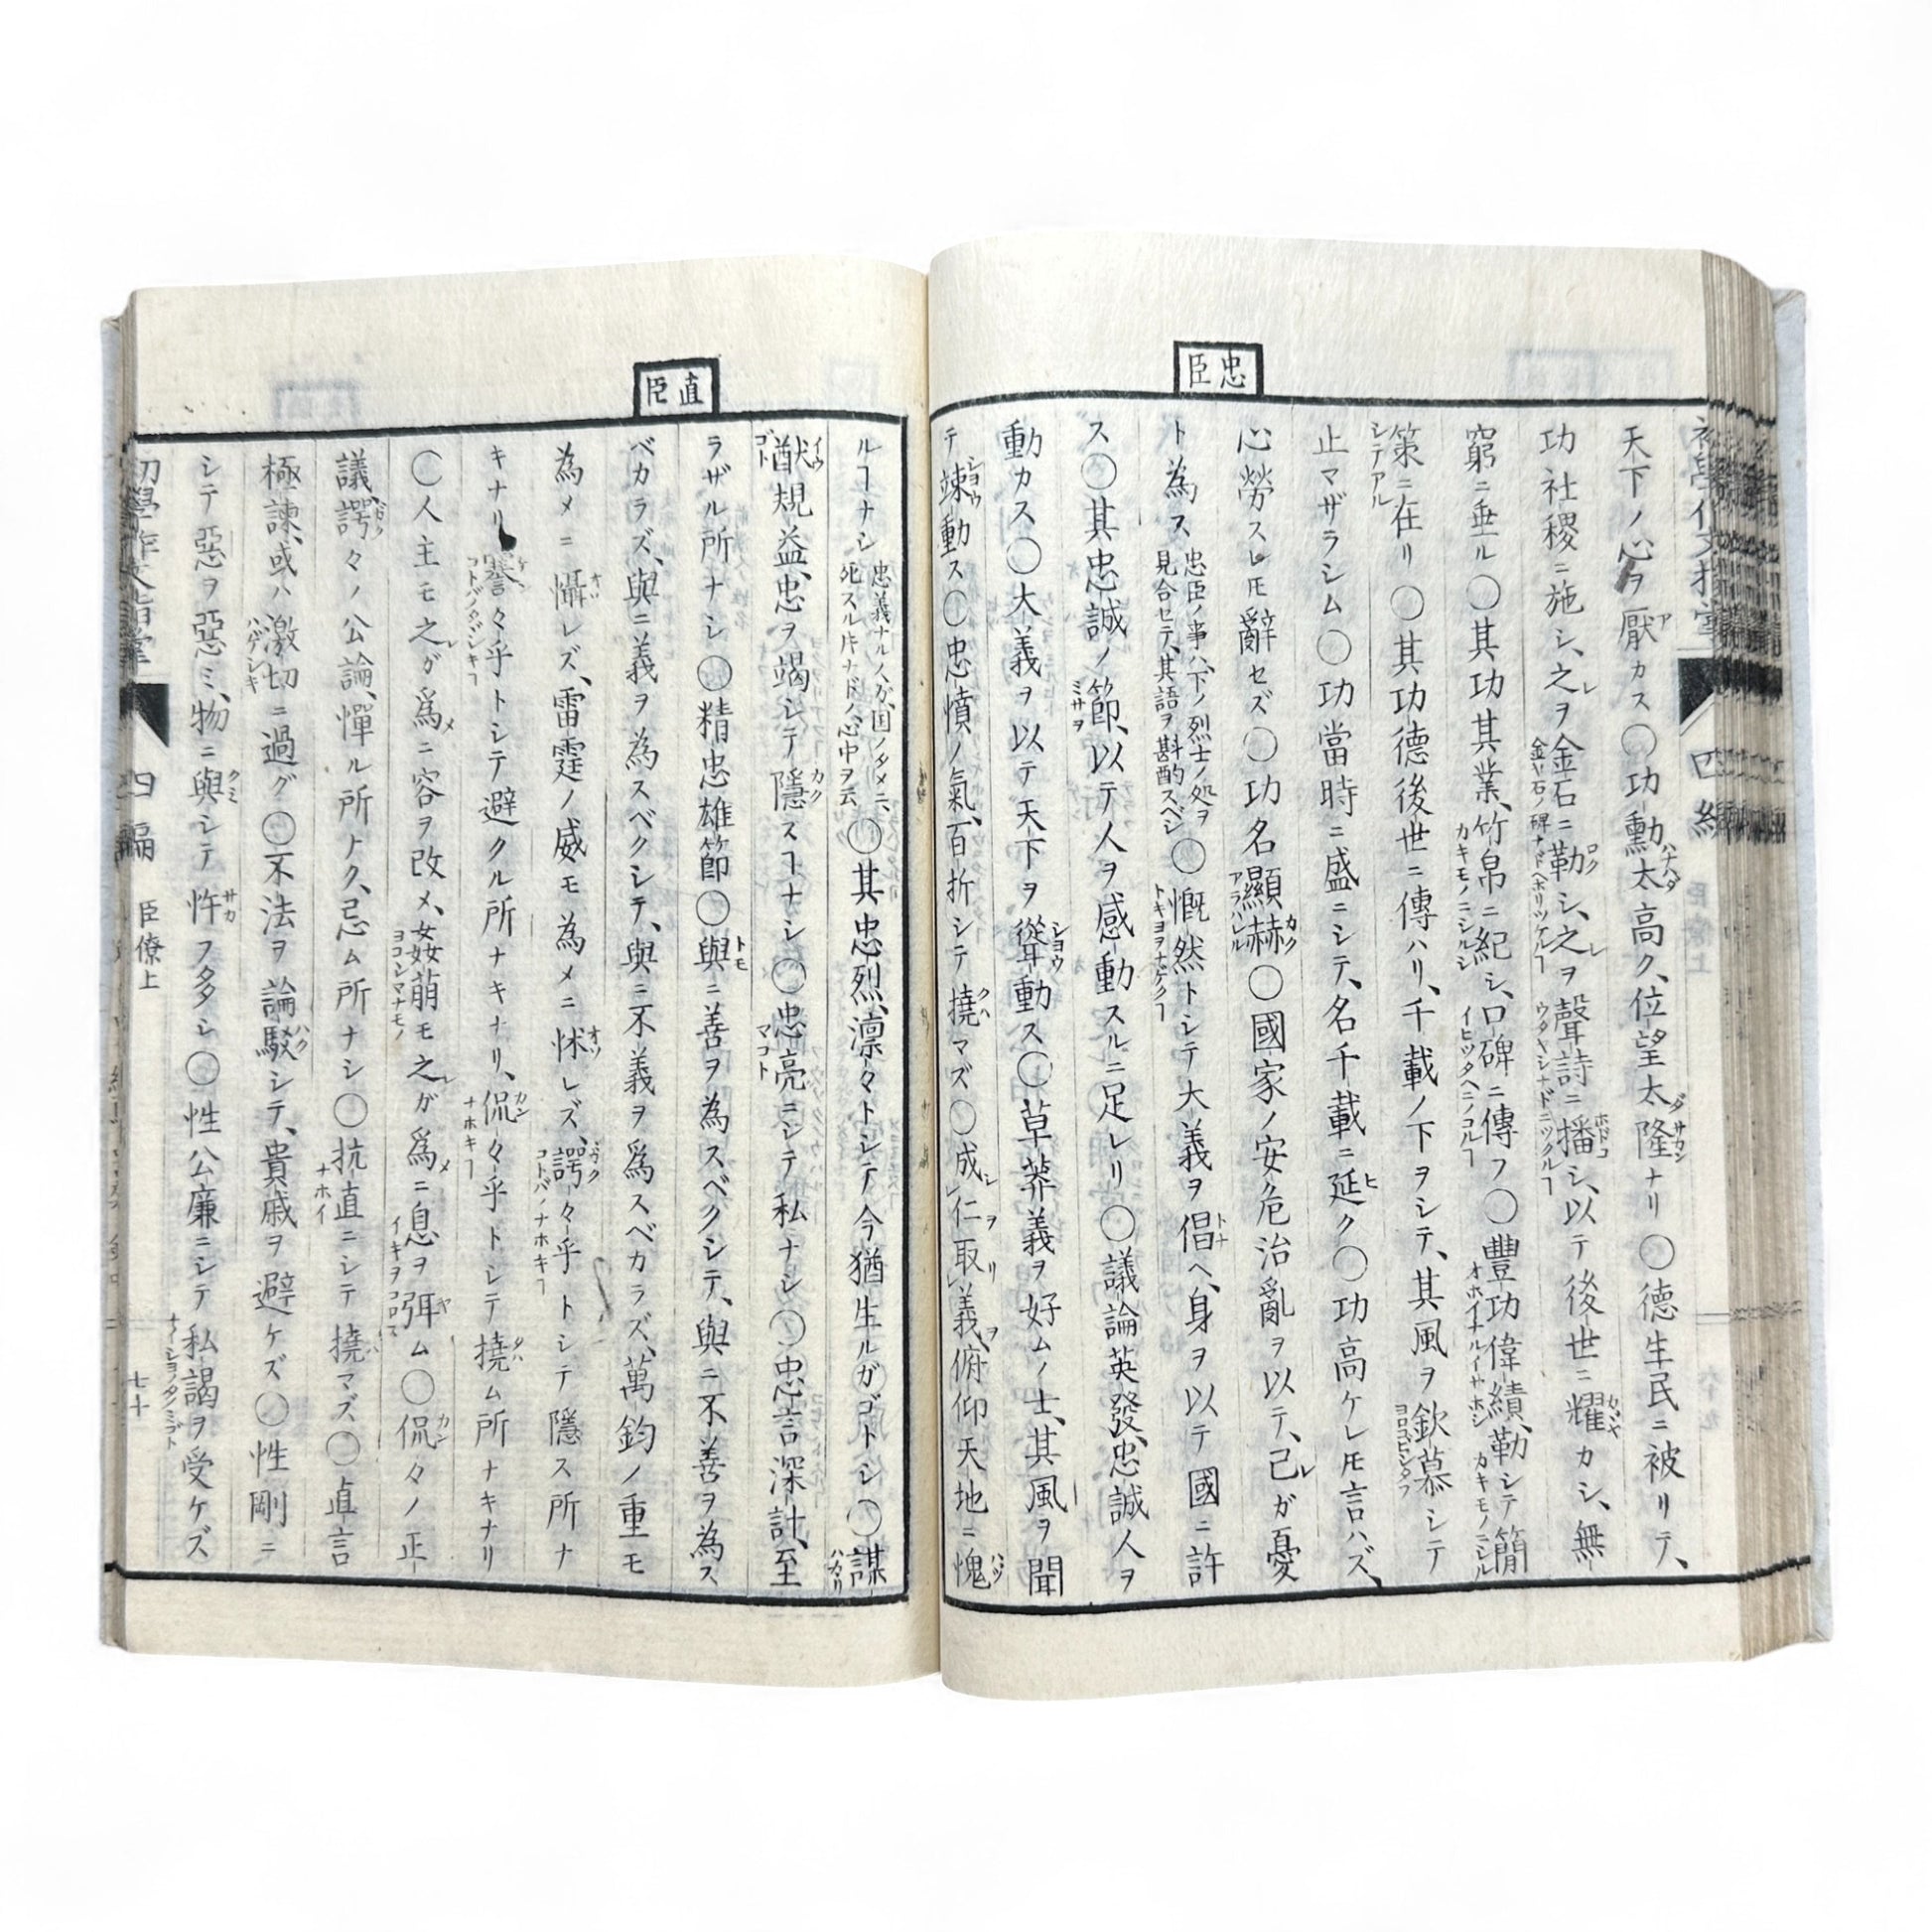 忠臣
天下ノ心ヲ厭カス〇功勳太高ク、位望太隆ナリ〇德生民ニ被リテ、
功社稷ニ施シ、之ヲ金石ニ勒シ、之ヲ聲詩ニ播シ、以テ後世ニ耀カシ、無
窮ニ垂ル〇其功其業、竹帛ニ紀シ、口碑ニ傳フ〇豐功偉績、勒シテ簡
策ニ在リ〇其功德後世ニ傳ハリ、千載ノ下ヲシテ、其風ヲ欽慕シテ
止マザラシム〇功當時ニ盛ニシテ、名千載ニ延ク〇功高ケレ𪜈言ハズ、
心勞スレ𪜈辭セズ〇功名顯赫〇國家ノ安危治亂ヲ以テ、己レガ憂
ト為ス 忠臣ノ事ハ、下ノ烈士ノ処ヲ見合セテ、其語ヲ斟酌スベシ〇慨然トシテ大義ヲ倡ヘ、身ヲ以テ國ニ許
ス〇其忠誠ノ節、以テ人ヲ感動スルニ足レリ〇議論英發、忠誠人ヲ
動カス〇大義ヲ以テ天下ヲ聳動ス〇草莽義ヲ好ムノ士、其風ヲ聞
テ竦動ス〇忠憤ノ氣、百折シテ撓マズ〇成仁取義、俯仰天地ニ愧
直臣
ルヿナシ 忠義ナル人ガ、国ノタメニ、死スル𪜈ナドノ、心中ヲ云〇其忠烈、凛々トシテ今猶生ルガゴトシ〇謀
猷規益、忠ヲ竭シテ隱スヿナシ〇忠亮ニシテ私ナシ〇忠言深計、至
ラザル所ナシ〇精忠雄節〇與ニ善ヲ為スベクシテ、與ニ不善ヲ為ス
ベカラズ、與ニ義ヲ為スベクシテ、與ニ不義ヲ爲スベカラズ、萬鈞ノ重モ
為メニ懾レズ、雷霆ノ威モ為メニ怵レズ、諤々乎トシテ隱ス所ナ
キナリ、謇々乎トシテ避クル所ナキナリ、侃々乎トシテ撓ム所ナキナリ
〇人主モ之ガ爲ニ容ヲ改メ、姦萠モ之ガ爲ニ息ヲ弭ム〇侃々ノ正
議、諤々ノ公論、憚ル所ナク、忌ム所ナシ〇抗直ニシテ撓マズ〇直言
極諫、或ハ激切ニ過グ〇不法ヲ論駁シテ、貴戚ヲ避ケズ〇性剛ニ
シテ惡ヲ惡ミ、物ニ與シテ忤フ多シ〇性公廉ニシテ私謁ヲ受ケズ
初學作文指掌 四編 臣僚上 七十